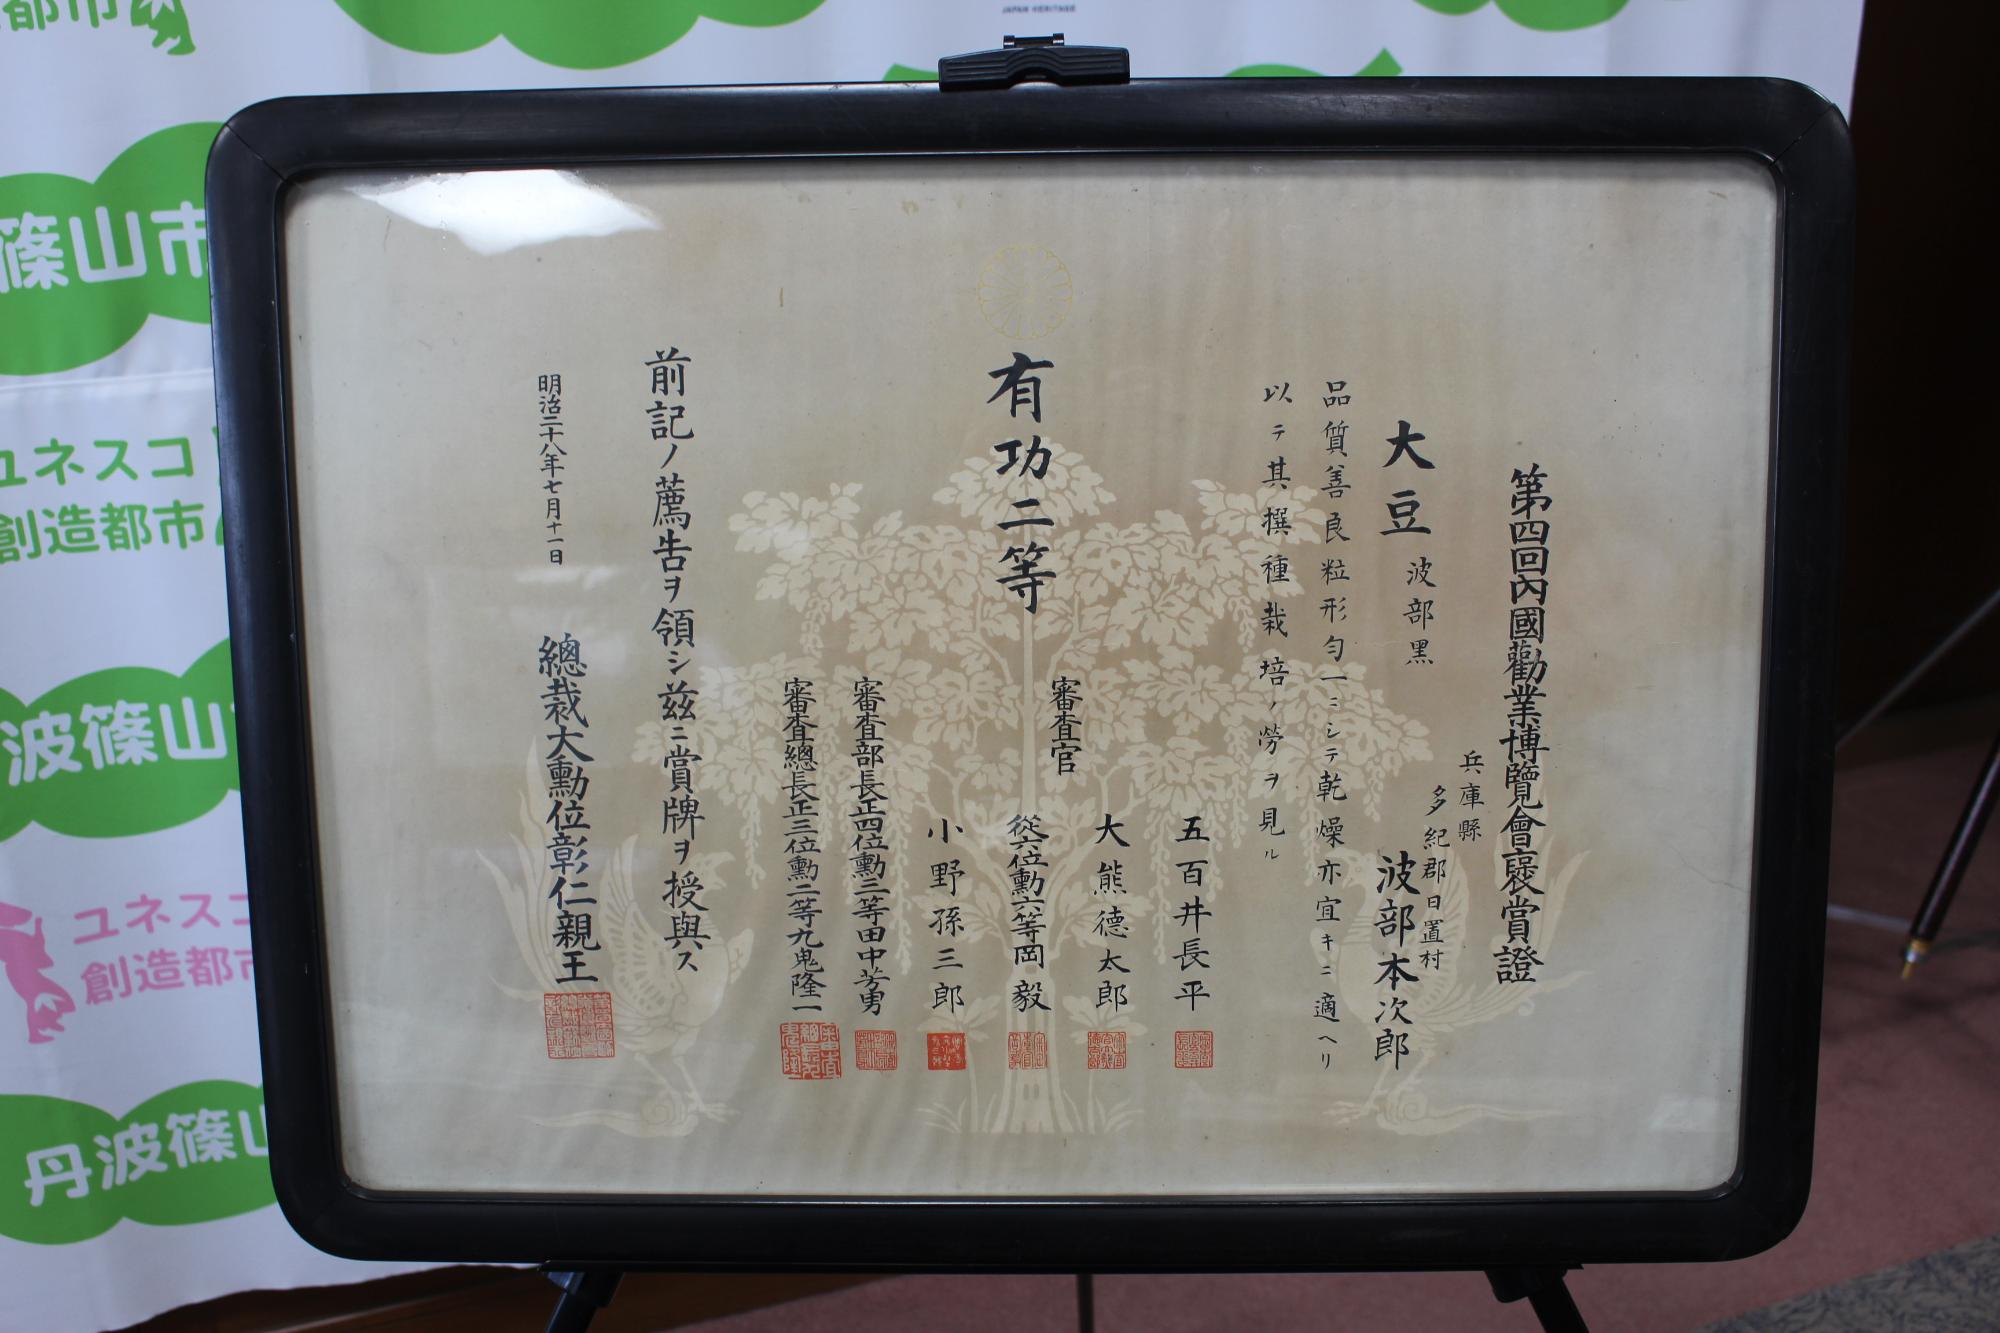 第四回內國勸業博覽會褒賞證
兵庫縣
多紀郡日置村
波部本次郎
大豆 波部黑
品質善良粒形勻一ニシテ乾燥亦宜キニ適ヘリ
以テ其撰種栽培ノ勞ヲ見ル
有功二等
審査官
五百井長平
大熊德太郎
從六位勳六等岡毅
小野孫三郎
審査部長正四位勳三等田中芳男
審査總長正三位勳二等九鬼隆一
前記ノ薦告ヲ領シ茲ニ賞牌ヲ授與ス
明治二十八年七月十一日
總裁大勳位彰仁親王
JAPAN HERITAGE
都市
篠山市
ユネスコ
創造都市
波篠山
ユネスコ
創造都市
丹波篠山